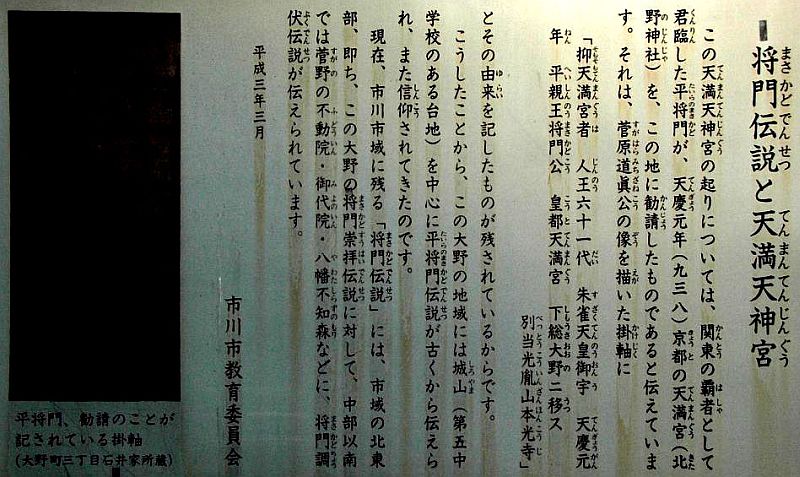 将門伝説と天満天神宮
まさかどでんせつ
てんまんてんじんぐう
この天満天神宮の起りについては、関東の覇者として
君臨した平将門が、天慶元年（九三八）京都の天満宮（北
野神社）を、この地に勧請したものであると伝えていま
す。それは、菅原道眞公の像を描いた掛軸に
「抑天満宮者 人王六十一代 朱雀天皇御宇 天慶元
年 平親王将門公 皇都天満宮 下総大野二移ス
別当光胤山本光寺」
とその由来を記したものが残されているからです。
こうしたことから、この大野の地域には城山（第五中
学校のある台地）を中心に平将門伝説が古くから伝えら
れ、また信仰されてきたのです。
現在、市川市域に残る「将門伝説」には、市域の北東
部、即ち、この大野の将門崇拝伝説に対して、中部以南
では菅野の不動院・御代院・八幡不知森などに、将門調
伏伝説が伝えられています。
平成三年三月
市川市教育委員会
平将門、勧請のことが
記されている掛軸
(大野町三丁目石井家所蔵)